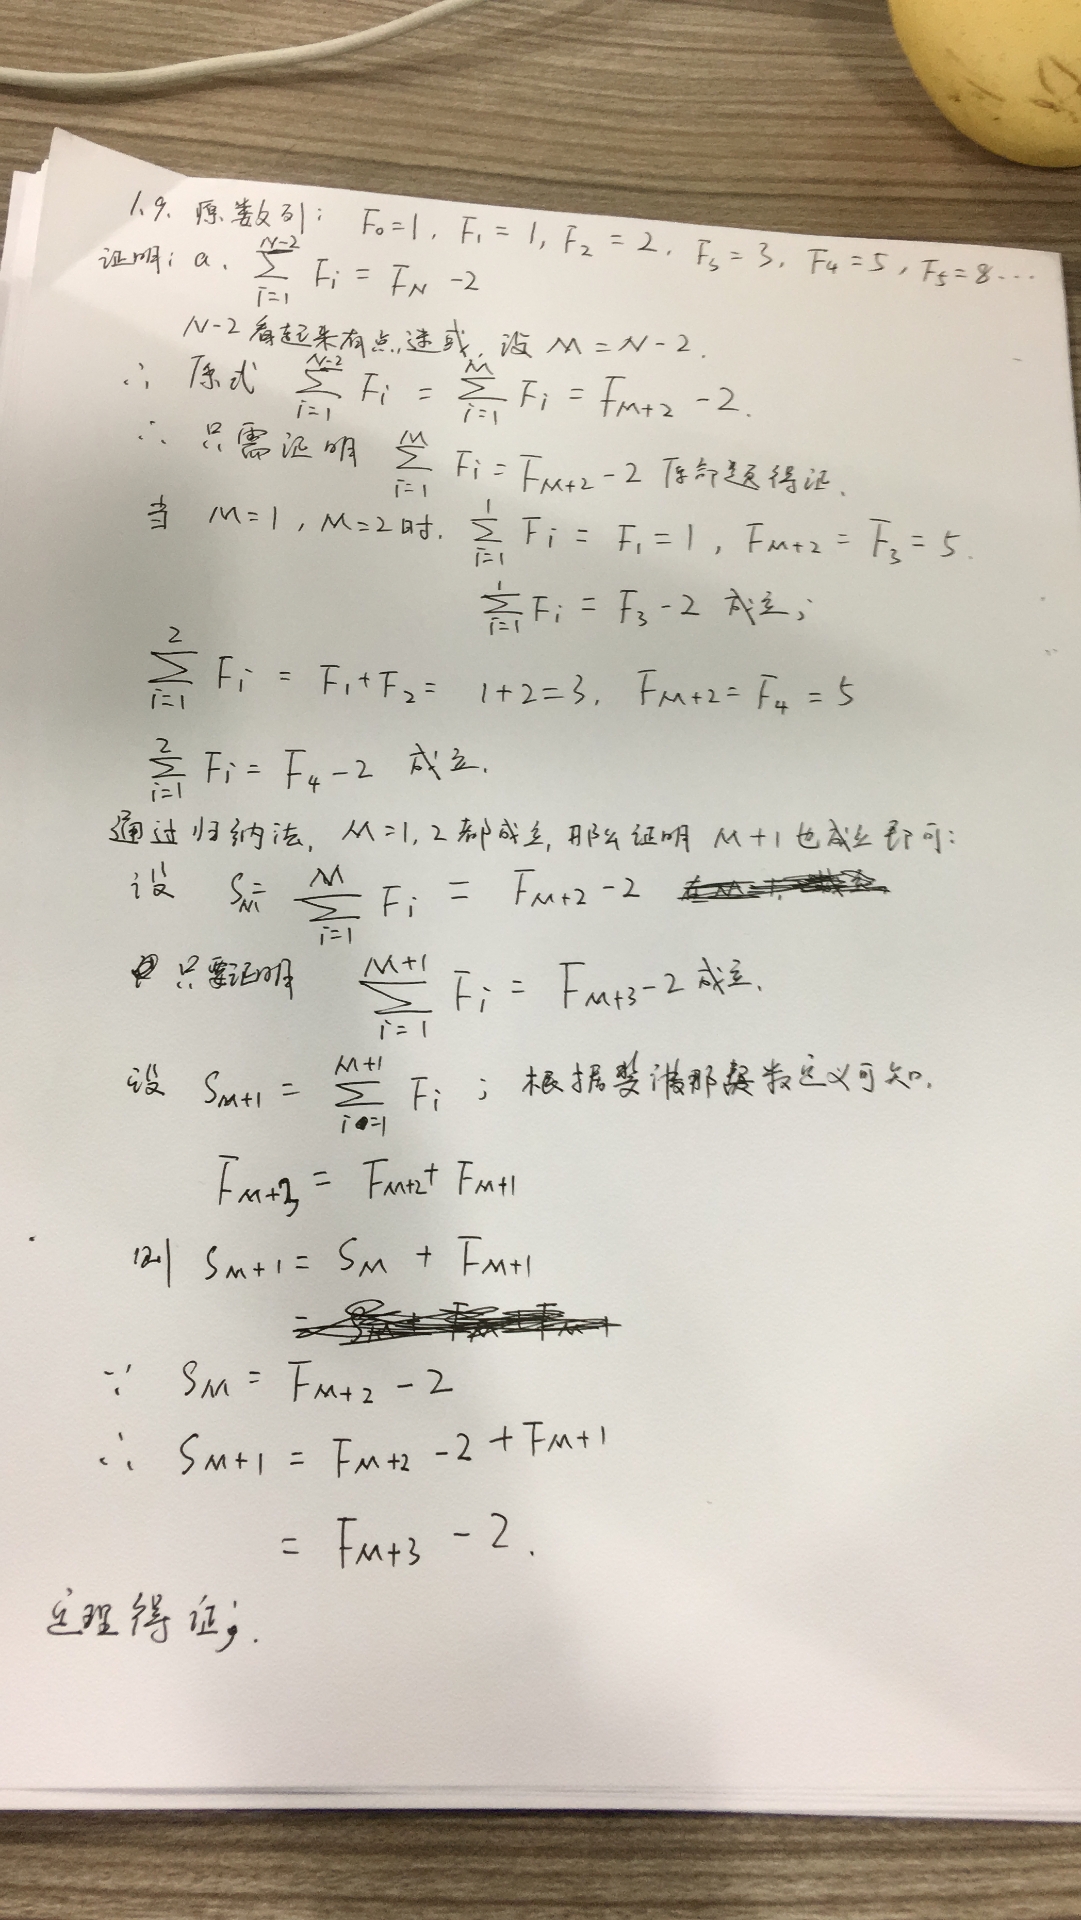 1.9. 原数列: F₀=1, F₁=1, F₂=2, F₃=3, F₄=5, F₅=8...
证明: a. ∑_{i=1}^{N-2} Fi = F_N -2
N-2看起来有点迷惑, 设 M=N-2.
∴ 原式 ∑_{i=1}^{N-2} Fi = ∑_{i=1}^{M} Fi = F_{M+2} -2.
∴ 只需证明 ∑_{i=1}^{M} Fi = F_{M+2} -2 原命题得证.
当 M=1, M=2时. ∑_{i=1}^{1} Fi = F₁=1, F_{M+2} = F₃=5.
∑_{i=1}^{1} Fi = F₃-2 成立;
∑_{i=1}^{2} Fi = F₁+F₂= 1+2=3. F_{M+2}=F₄=5
∑_{i=1}^{2} Fi= F₄-2 成立.
通过归纳法, M=1,2都成立, 那么证明 M+1也成立即可:
设 S_M= ∑_{i=1}^{M} Fi = F_{M+2} -2
只要证明 ∑_{i=1}^{M+1} Fi = F_{M+3}-2 成立.
设 S_{M+1} = ∑_{i=1}^{M+1} Fi ; 根据斐波那契数定义可知.
F_{M+3} = F_{M+2}+ F_{M+1}
则 S_{M+1} = S_M + F_{M+1}
∵ S_M = F_{M+2} -2
∴ S_{M+1} = F_{M+2} -2 +F_{M+1}
= F_{M+3} -2.
定理得证;.